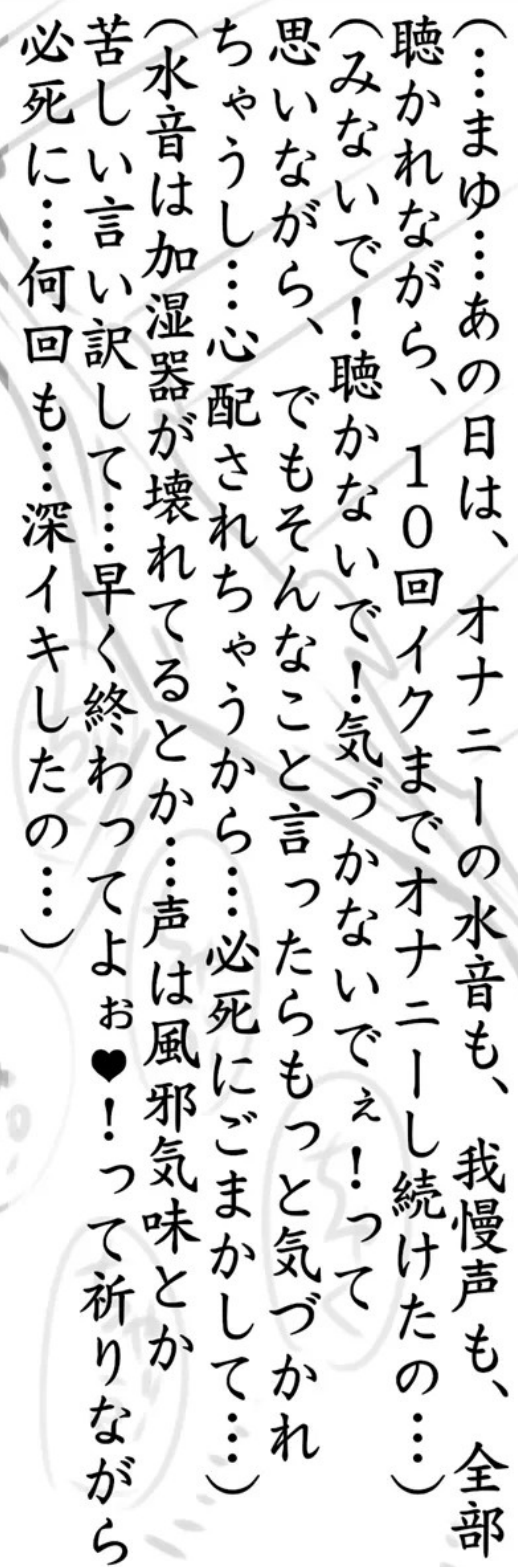 (…まゆ…あの日は、オナニーの水音も、我慢声も、全部
聴かれながら、10回イクまでオナニーし続けたの…)
(みないで！聴かないで！気づかないでぇ！って
思いながら、でもそんなこと言ったらもっと気づかれ
ちゃうし…心配されちゃうから…必死にごまかして…)
(水音は加湿器が壊れてるとか…声は風邪気味とか
苦しい言い訳して…早く終わってよぉ♥！って祈りながら
必死に…何回も…深イキしたの…)